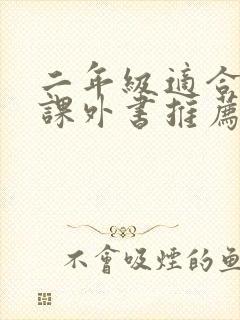 二年級適合
課外書推薦
不會吸煙的魚